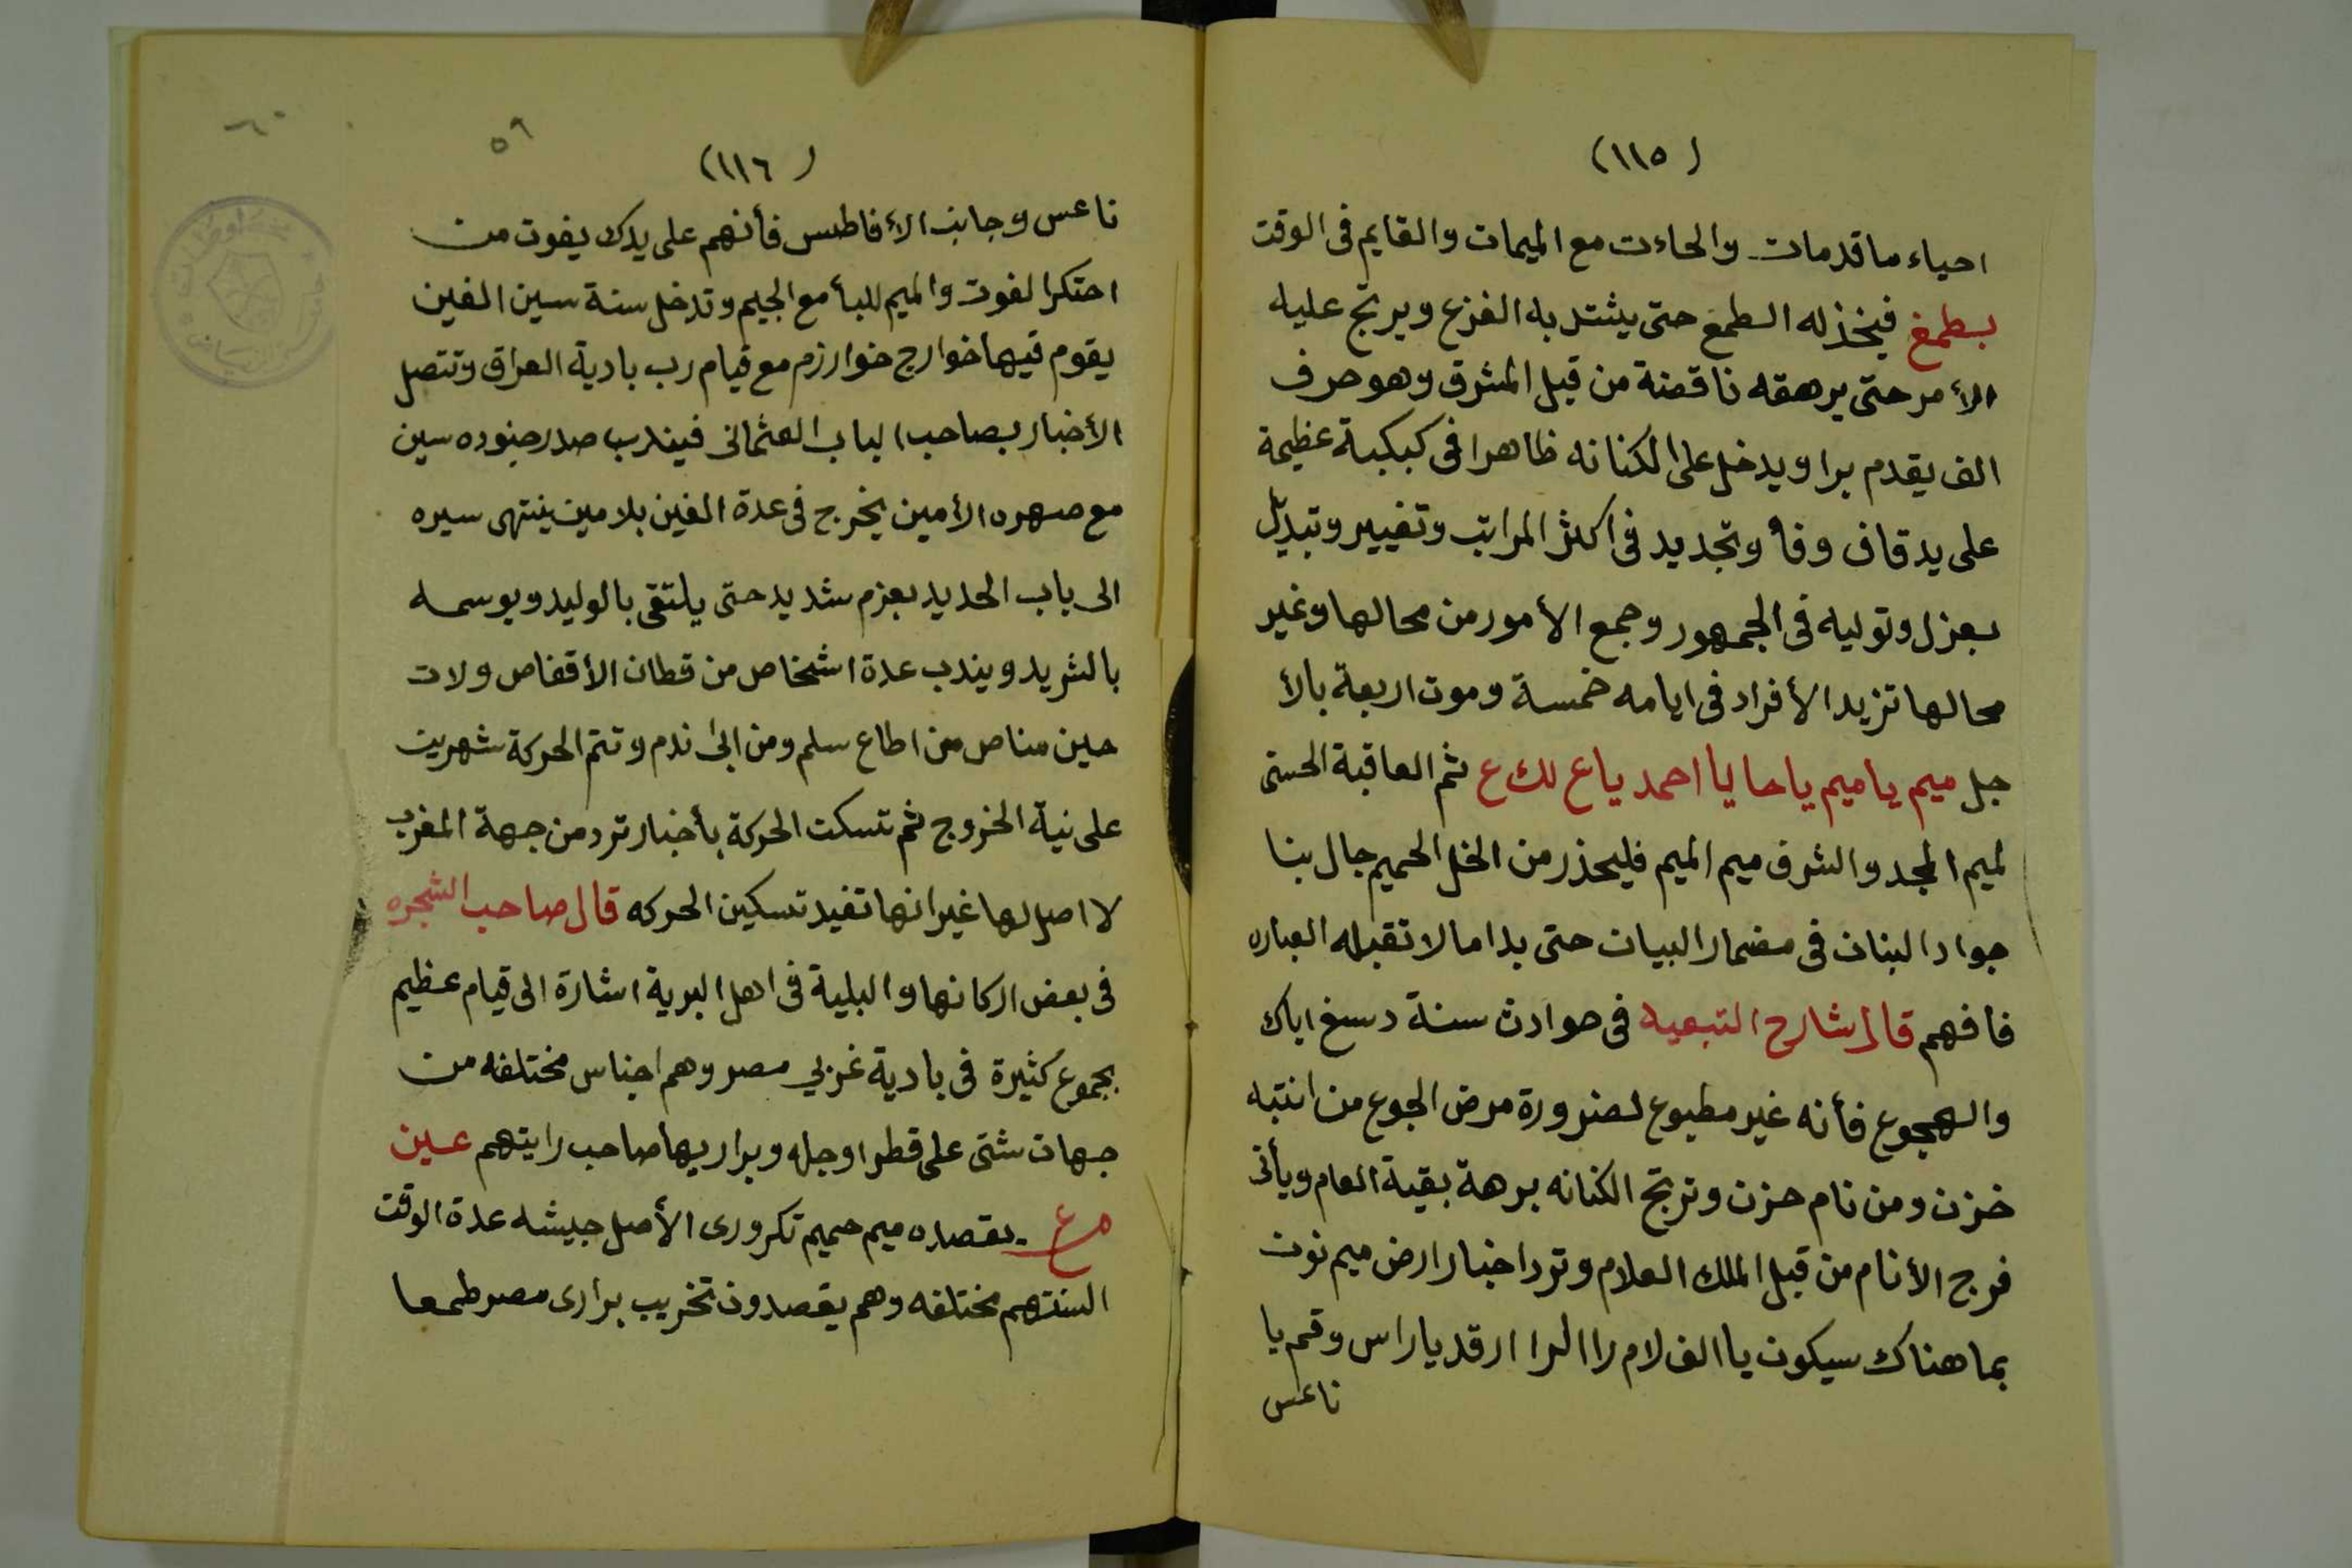 (١١٥)
احياء ما قد مات والحاءت مع الميمات والقايم فى الوقت
بطمغ فيخذله الطمغ حتى يشتد به الفزع ويرتج عليه
الأمر حتى يرهقه ناقصة من قبل المشرق وهو حرف
الف يقدم برا ويدخل على الكنانه ظاهرا فى كبكبة عظيمة
على يد قاف وفأ وتجديد فى اكثر المراتب وتغيير وتبديل
بعزل وتوليه فى الجمهور وجمع الأمور من محالها وغير
محالها تزيد الأفراد فى ايامه خمسة وموت اربعة بالأ
جل ميم يا ميم يا حا يا احمد ياع لك ع ثم العاقبة الحسنى
لميم المجد والشرف ميم الميم فليحذر من الخل الحميم جال بنا
جواد البنان فى مضمار البيان حتى بدا ما لا تقبله العباره
فافهم قال شارح التبعيه فى حوادث سنة دسغ اياك
والهجوع فأنه غير مطبوع لضرورة مرض الجوع من انتبه
خزن ومن نام حزن وترتج الكنانه برهة بقية العام ويأتى
فرج الأنام من قبل الملك العلام وترد اخبار ارض ميم نون
بما هناك سيكون يا الف لام را الرا ارقد يا راس وقم يا
ناعس
٥٩
٦٠
(١١٦)
ناعس وجانب الأفاطس فأنهم على يدك يفوت من
احتكر الفوت والميم للبأ مع الجيم وتدخل سنة سين الفين
يقوم فيها خوارج خوارزم مع قيام رب بادية العراق وتتصل
الأخبار بصاحب الباب العثمانى فيندب صدر جنوده سين
مع صهره الأمين يخرج فى عدة الفين بلامين ينتهى سيره
الى باب الحديد بعزم شديد حتى يلتقى بالوليد ويوسمه
بالشريد ويندب عدة اشخاص من قطان الأقفاص ولات
حين مناص من اطاع سلم ومن ابى ندم وتتم الحركة شهرين
على نية الخروج ثم تسكت الحركة بأخبار ترد من جهة المغرب
لا اصل لها غير انها تفيد تسكين الحركه قال صاحب الشجره
فى بعض اركانها والبلية فى اهل البرية اشارة الى قيام عظيم
بجموع كثيرة فى بادية غربي مصر وهم اجناس مختلفه من
جهات شتى على قطر اوجله وبراريها صاحب رايتهم عين
م ع يقصده ميم حميم تكرورى الأصل جيشه عدة الوقت
السنتهم مختلفه وهم يقصدون تخريب برارى مصر طمعا